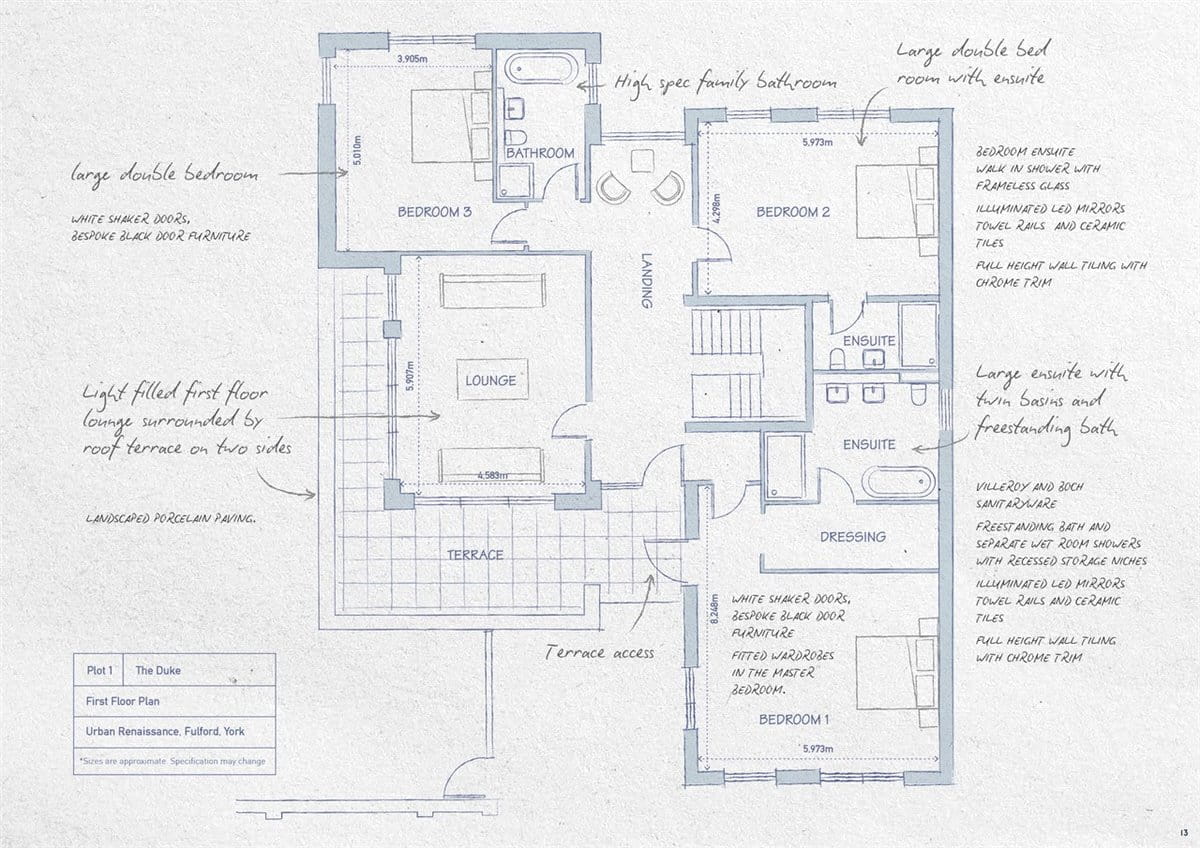 3.905m
5.010m
BATHROOM
BEDROOM 3
High spec family bathroom
Large double bed
room with ensuite
5.973m
4.298m
BEDROOM 2
LANDING
large double bedroom
WHITE SHAKER DOORS,
BESPOKE BLACK DOOR FURNITURE
BEDROOM ENSUITE
WALK IN SHOWER WITH
FRAMELESS GLASS
ILLUMINATED LED MIRRORS
TOWEL RAILS AND CERAMIC
TILES
FULL HEIGHT WALL TILING WITH
CHROME TRIM
LOUNGE
5.907m
4.583m
Light filled first floor
lounge surrounded by
roof terrace on two sides
LANDSCAPED PORCELAIN PAVING.
ENSUITE
ENSUITE
Large ensuite with
twin basins and
freestanding bath
DRESSING
VILLEROY AND BOCH
SANITARYWARE
FREESTANDING BATH AND
SEPARATE WET ROOM SHOWERS
WITH RECESSED STORAGE NICHES
ILLUMINATED LED MIRRORS
TOWEL RAILS AND CERAMIC
TILES
FULL HEIGHT WALL TILING
WITH CHROME TRIM
TERRACE
Terrace access
8.248m
WHITE SHAKER DOORS,
BESPOKE BLACK DOOR
FURNITURE
FITTED WARDROBES
IN THE MASTER
BEDROOM.
BEDROOM 1
5.973m
Plot 1 The Duke
First Floor Plan
Urban Renaissance, Fulford, York
*Sizes are approximate. Specification may change
13